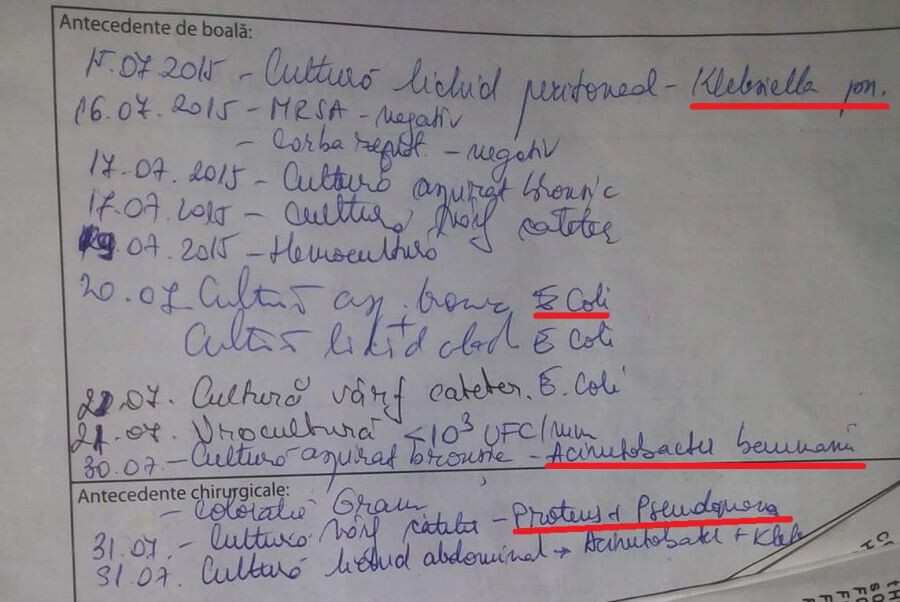 Antecedente de boală:
15.07.2015 - Cultură lichid peritoneal - Klebsiella pn.
16.07.2015 - MRSA - negativ
- negativ
17.07.2015 - Cultură aspirat bronsic
17.07.2015 - Cultură vârf cateter
19.07.2015 - Hemocultură
20.07 Cultură asp. bronș E Coli
Cultură likid abd E Coli
21.07. Cultură vârf cateter. E. Coli
21.07. Urocultură <10³ UFC/mm
30.07. - Cultură aspirat bronsic - Acinetobacter baumanii
Antecedente chirurgicale:
- Coloratie Gram
31.07. - Cultură vârf cateter - Proteus + Pseudomona
31.07. Cultură lichid abdominal → Acinetobacter + Kleb